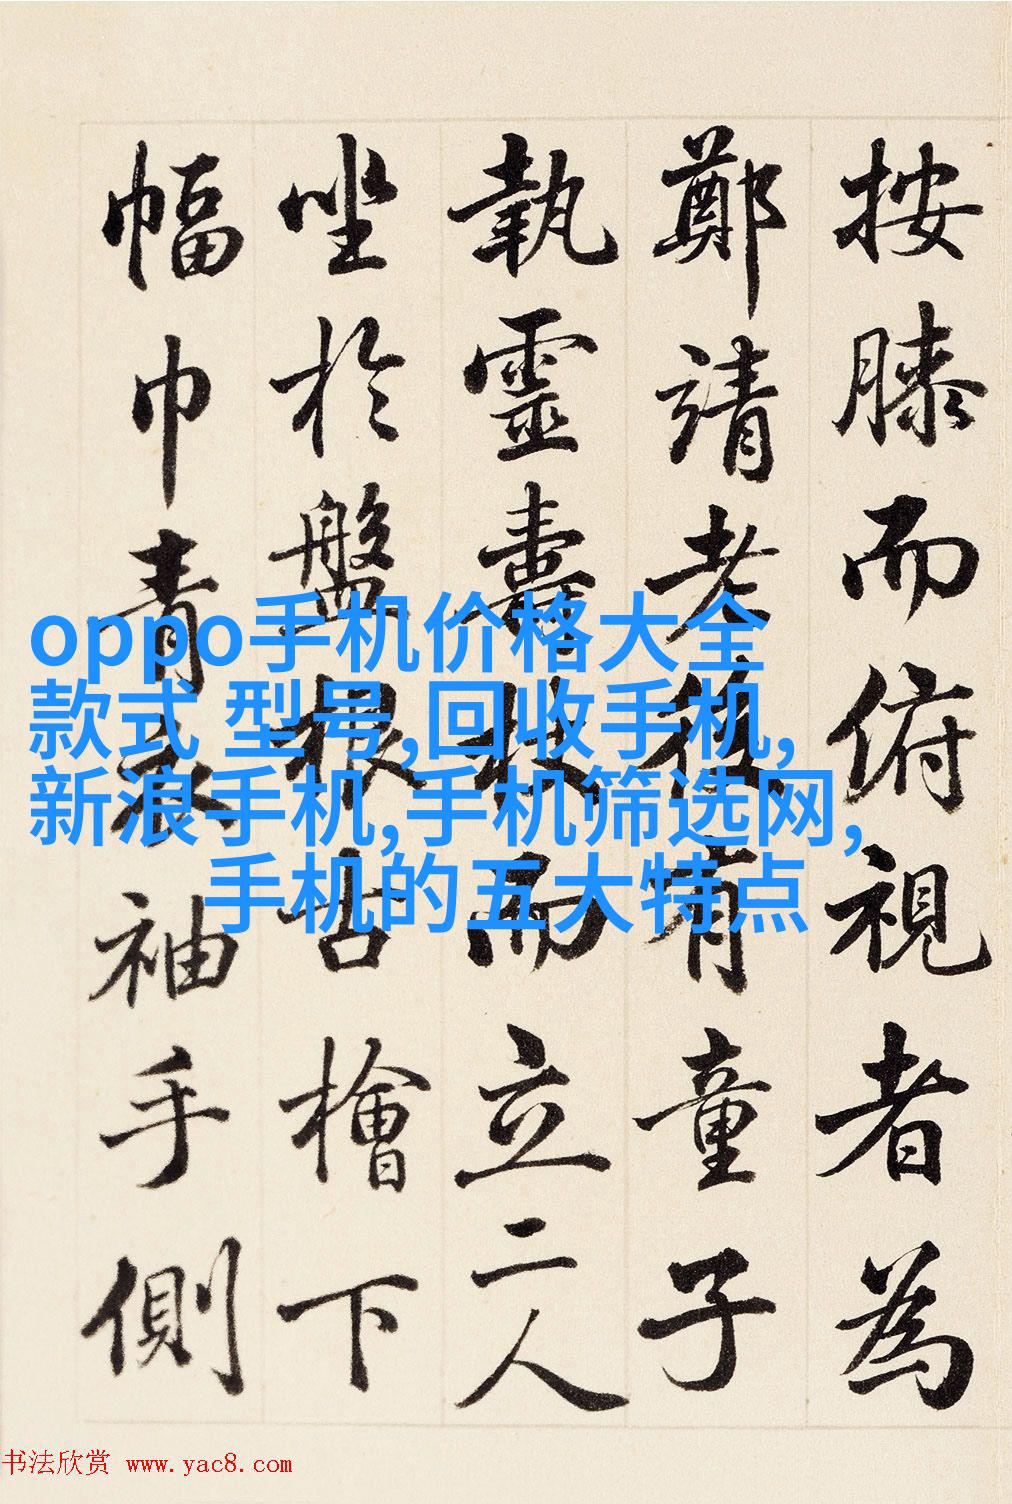 按膝而俯視者為
鄭靖老後有童子
執靈壽杖而立二人
坐於盤根古檜下
幅巾青衣袖手側
oppo手机价格大全
款式 型号,回收手机,
新浪手机,手机筛选网,
手机的五大特点
书法欣赏 www.yac8.com